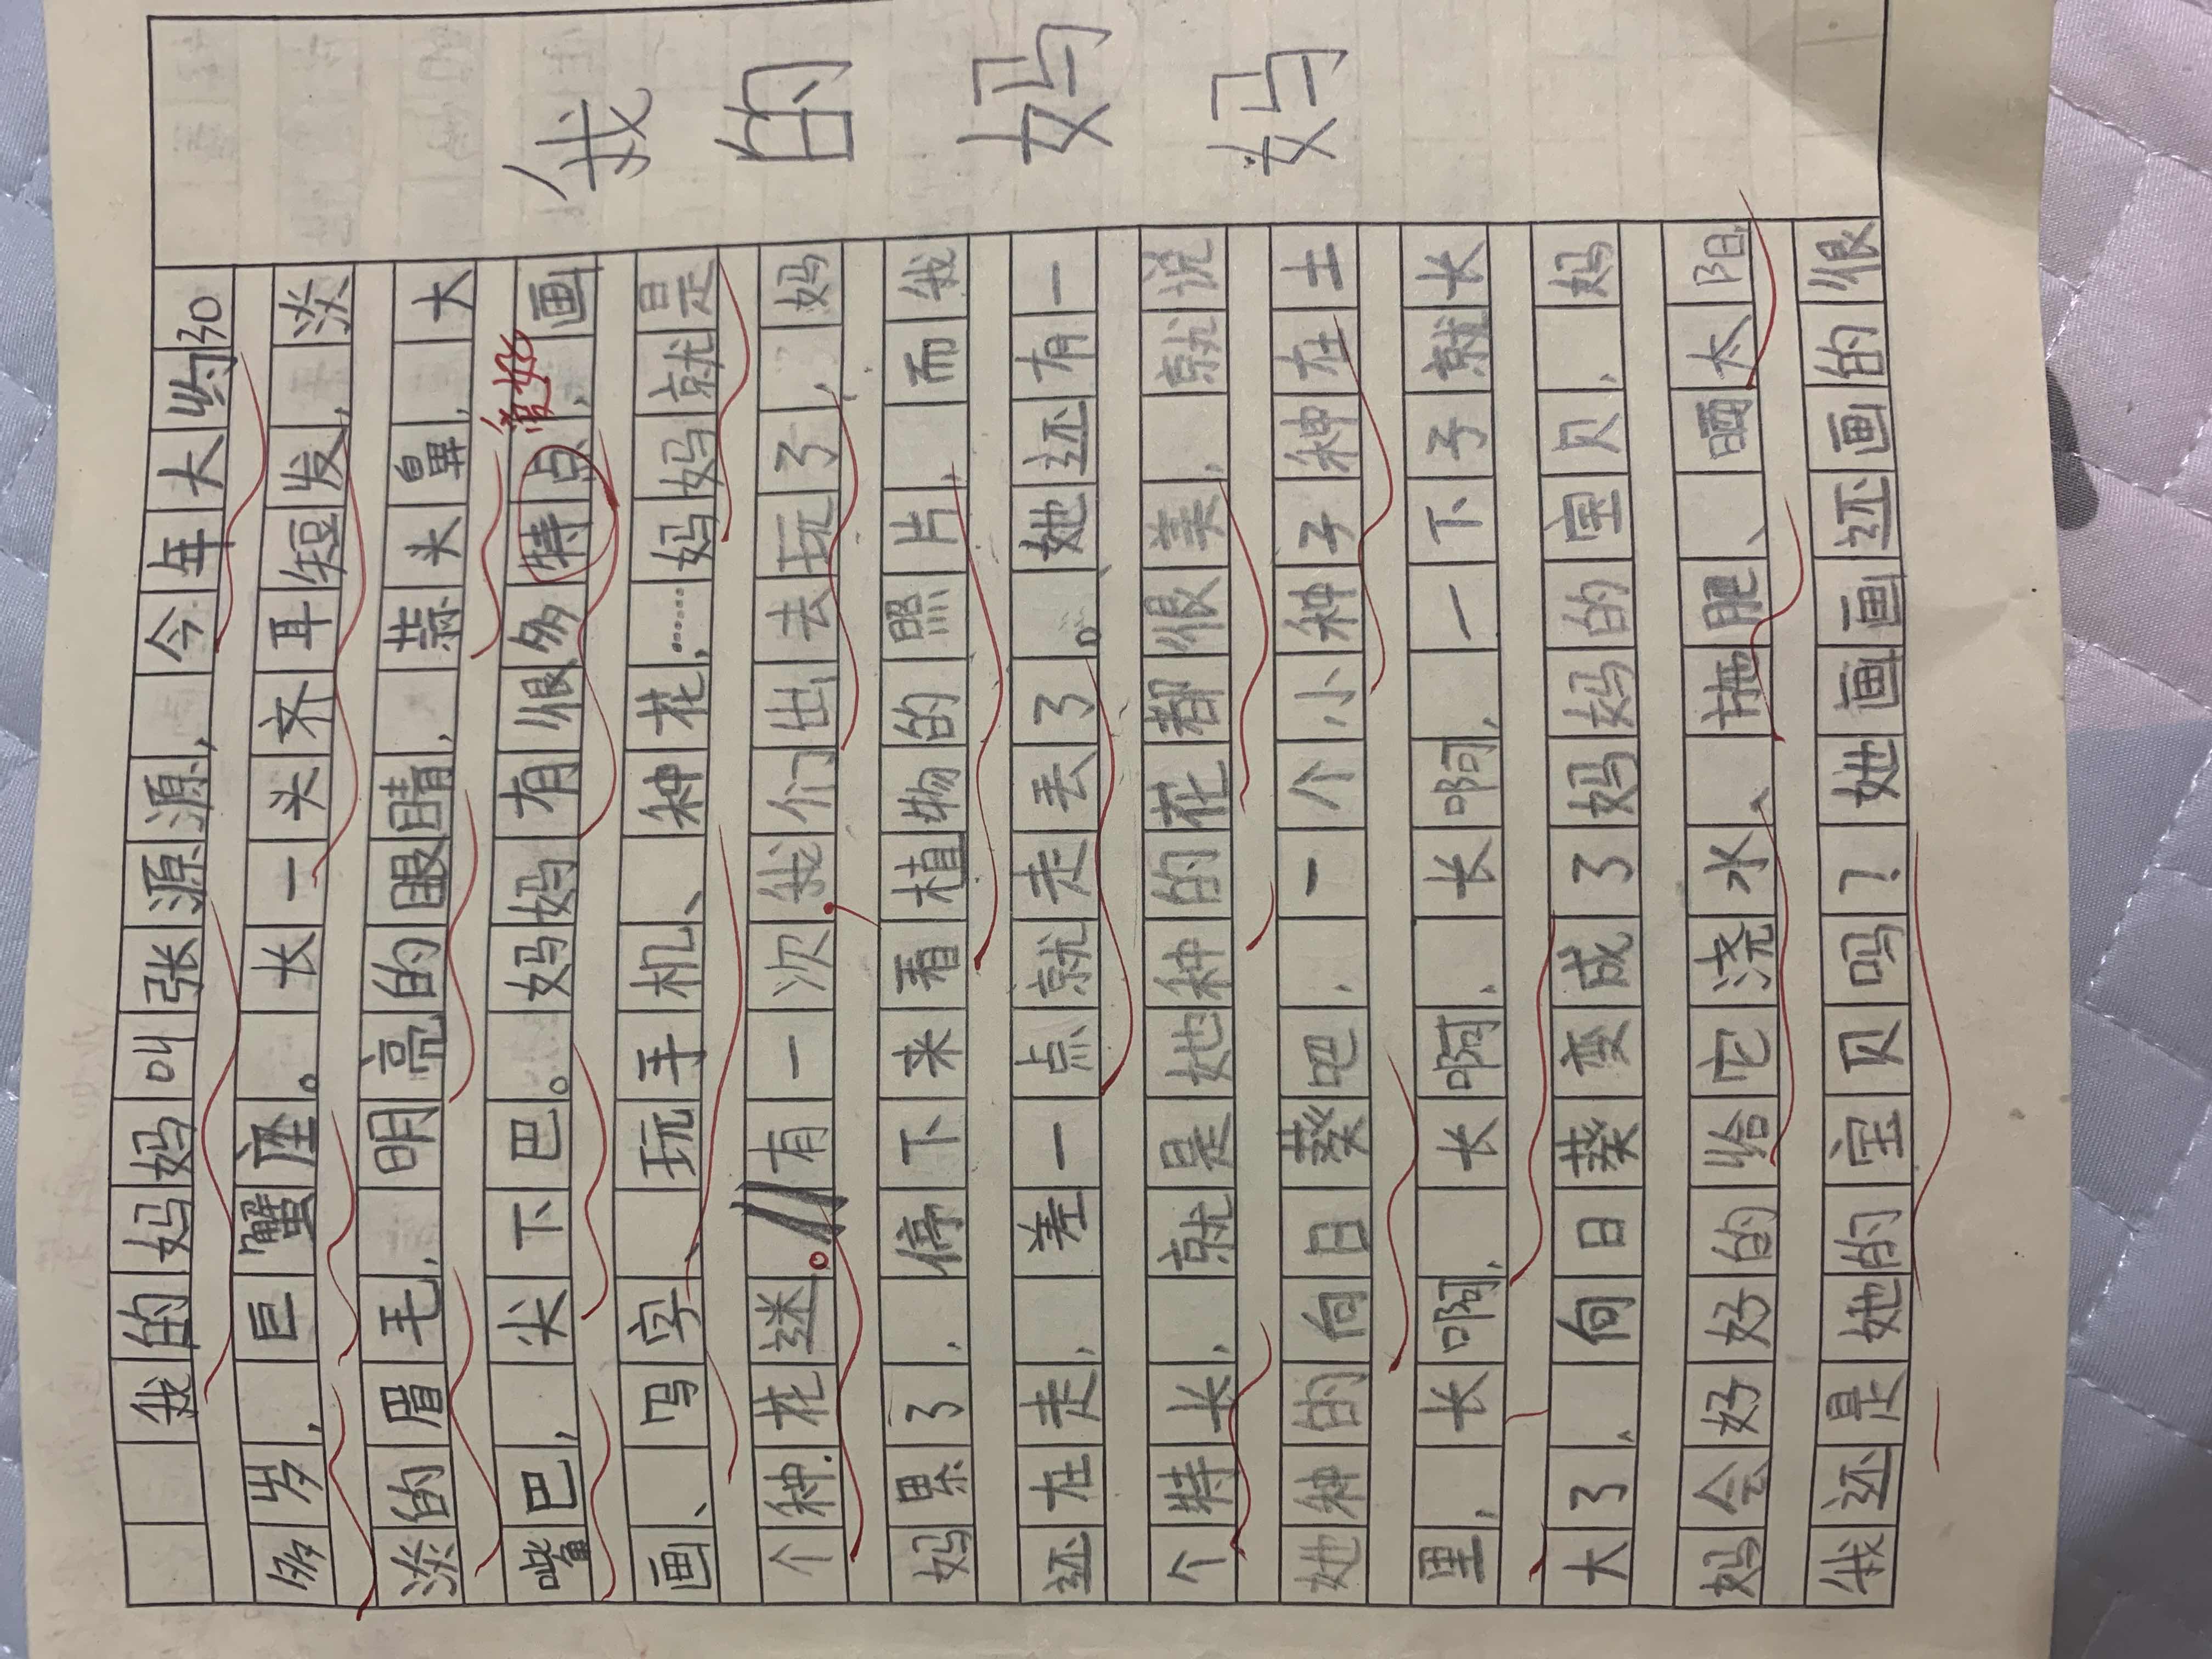 我的妈妈
我的妈妈叫张源源，今年大约30
多岁，巨蟹座。长一头齐耳短发，淡
淡的眉毛，明亮的眼睛，蒜头鼻，大
爱好
嘴巴，尖下巴。妈妈有很多特点，画
画、写字、玩手机、种花，……妈妈就是
个种花迷。有一次我们出去玩了，妈
妈累了，停下来看植物的照片，而我
还在走，差一点就走丢了。她还有一
个特长，就是她种的花都很美，就说
她种的向日葵吧，一个小种子种在土
里，长啊，长啊，长啊，一下子就长
大了，向日葵变成了妈妈的宝贝，妈
妈会好好的给它浇水、施肥、晒太阳，
我还是她的宝贝吗？她画画还画的很